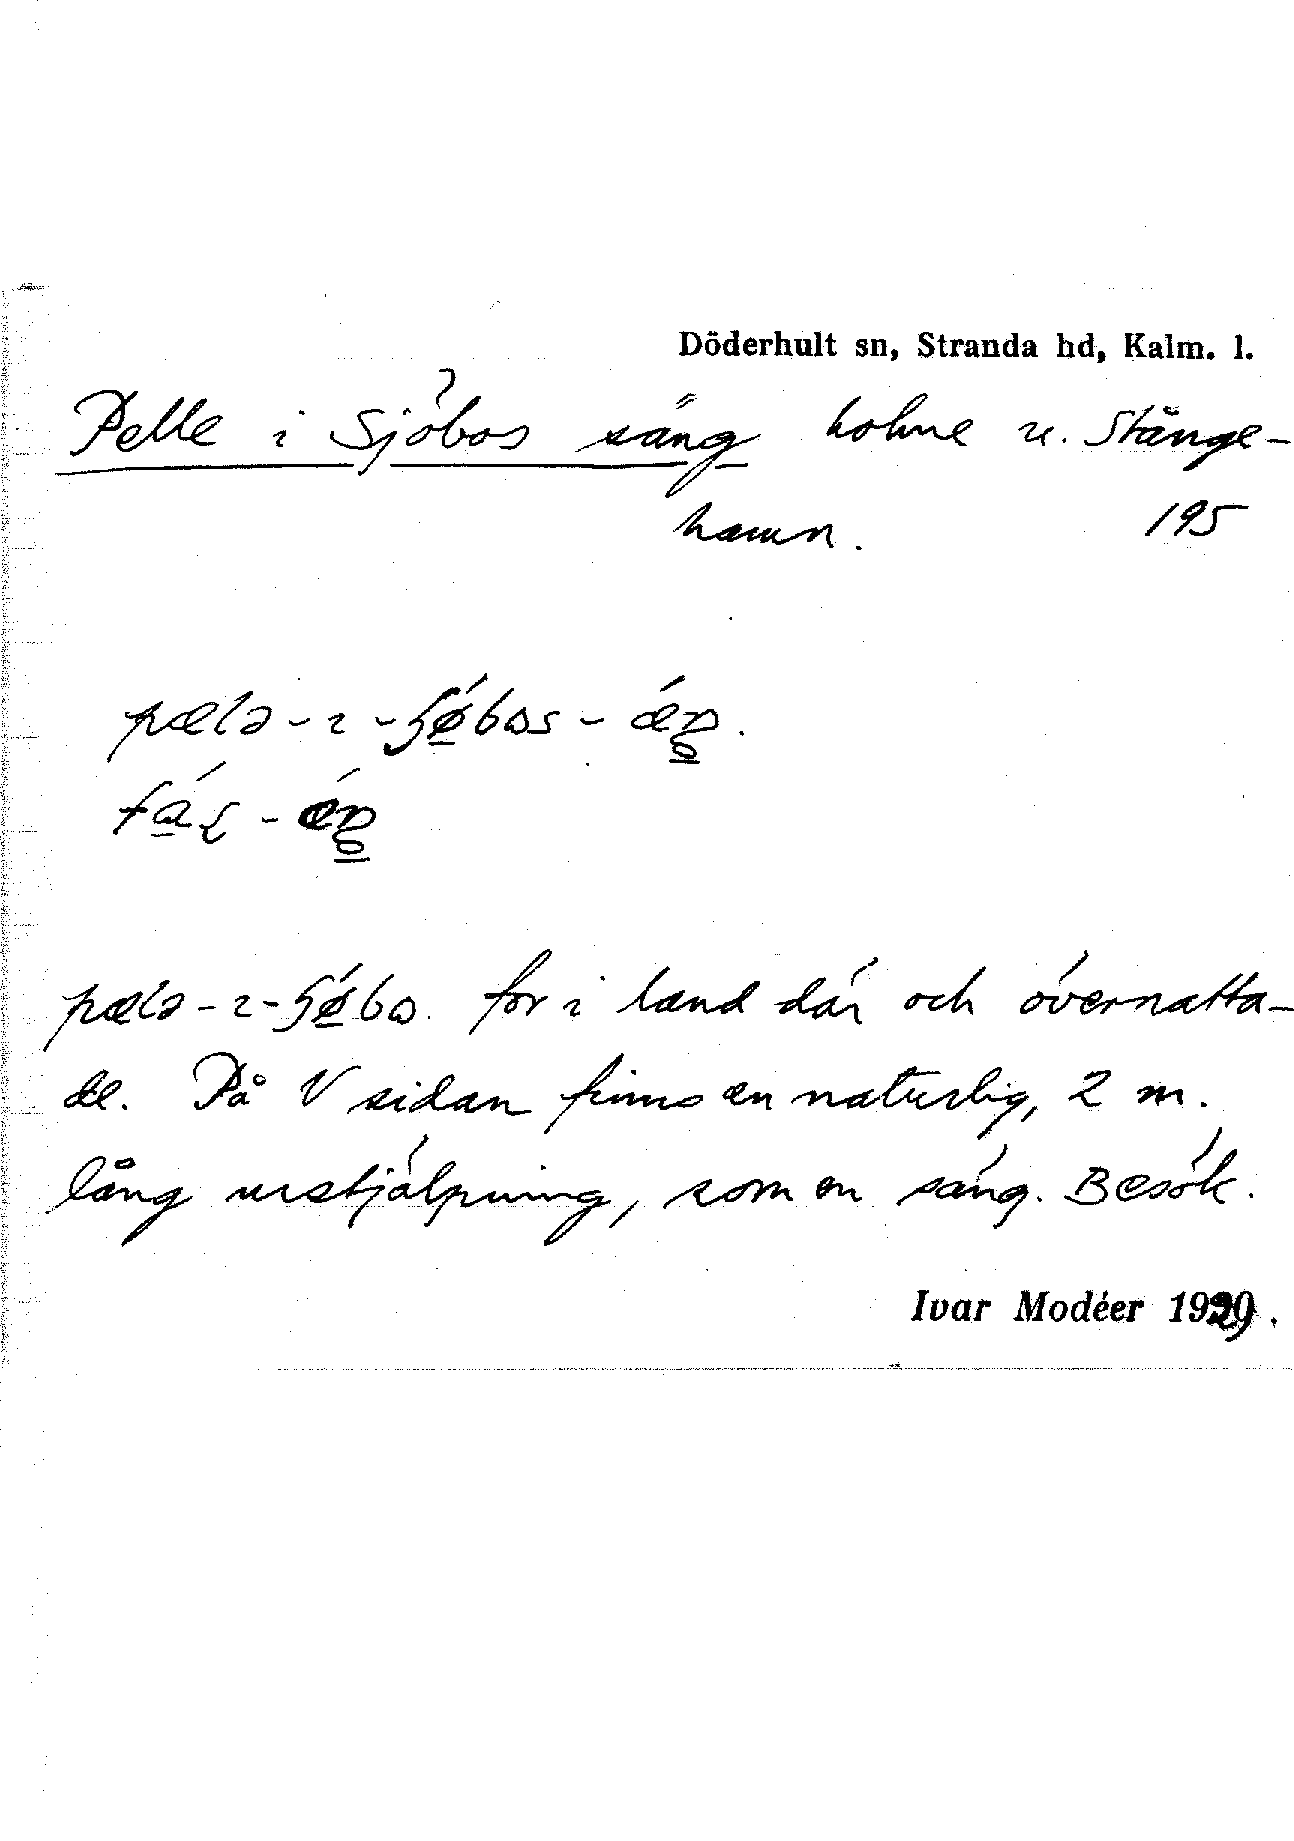 Döderhult sn, Stranda hd, Kalm. l.
Pelle i Sjöbos säng holme u. Stånge-
hamn. 195
pælə-ɪ-
pælə-ɪ- för i land där och övernatta-
de. På V sidan finns en naturlig, 2 m.
lång urstjälpning, som en säng. Besök.
Ivar Modéer 1929.